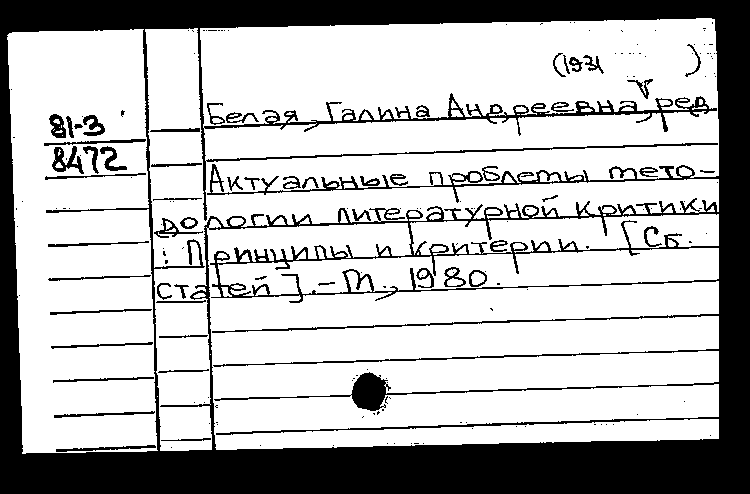 (1931 )
81-3
Белая, Галина Андреевна, ред
8472
Актуальные проблемы мето-
дологии литературной критики
: Принципы и критерии. [Сб.
статей]. - М., 1980.